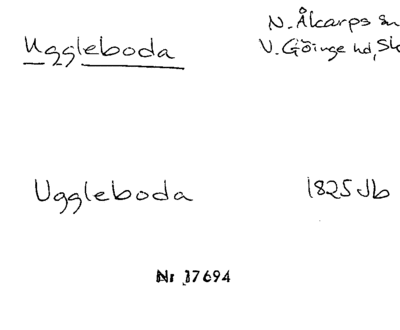 Uggleboda
N. Ålcarps sn
V. Göinge hd, Sk
Uggleboda
1825 Jb
Nr 17694